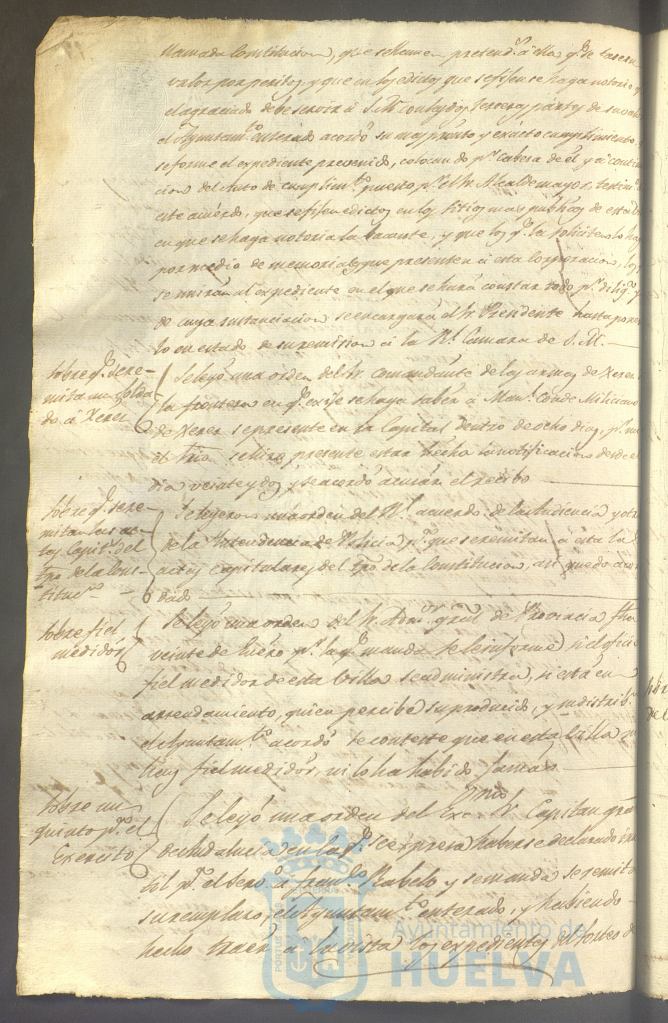 llamada Constitucion, que se llamen pretend.s á ella q.e se tase su
valor por peritos, y que en los edictos que se fijen se haga notorio q.
el agraciado debe servir á S. M. con los dos terceras partes de su valor
el Ayuntam.to enterado acordó su mas pronto y exacto cumplimiento
se forme el expediente prevenido, colocando p.r cabeza de él y á continua
cion del Auto de cumplim.to puesto p.r el Sr. Alcalde mayor, testim.o
este acuerdo, que se fijen edictos en los sitios mas publicos de esta
en que se haga notoria la vacante, y que los q.e la soliciten lo hagan
por medio de memoriales que presenten á esta corporacion, los
se unirán al expediente en el que se hará constar todo p.r dilig.a y
de cuya sustanciacion se encargará el Sr. Presidente hasta poner
lo en estado de su remision á la R.l Camara de S. M.
Sobre q.e se re-
mita un solda
do á Xerez
Se leyó una orden del Sr. Comandante de las armas de Xerez
la frontera en q.e exije se haga saber á Man.l Conde Miliciano
de Xerez se presente en la Capital dentro de ocho dias, p.r
el Srio. se hizo presente estar hecha la notificacion desde el
dia veinte y dos y se acordó acusar el recibo
Sobre q.e se re-
mitan las ac-
tas Capit.s del
tpo. de la Cons
tituc.n
Se leyeron una orden del R.l acuerdo de la Audiencia y otra
de la Intendencia de Policia p.a que se remitan á esta las
actas capitulares del tpo. de la Constitucion, asi quedo acor
dado
Sobre fiel
medidor
Se leyó una orden del Sr. Adm.or gral de Provincia fha
veinte de Enero p.r la q.e manda se le informe si el oficio
fiel medidor de esta Villa se administra, si está en
arrendamiento, quien percibe su producido, y su distrib.n
el Ayuntam.to acordó se conteste que en esta Villa no
hay fiel medidor, ni lo ha habido jamas
Sobre un
quinto p.a el
Exercito
Se leyó una orden del Exc.mo Sr. Capitan gral
de Andalucia en la q.e se expresa haberse declarado inu
til p.a el serv.o á Fran.co Rabelo y se manda se remita
su remplazo, el Ayuntam.to enterado, y habiendo
hecho traer á la vista los expedientes del sorteo d
Ayuntamiento de
HUELVA